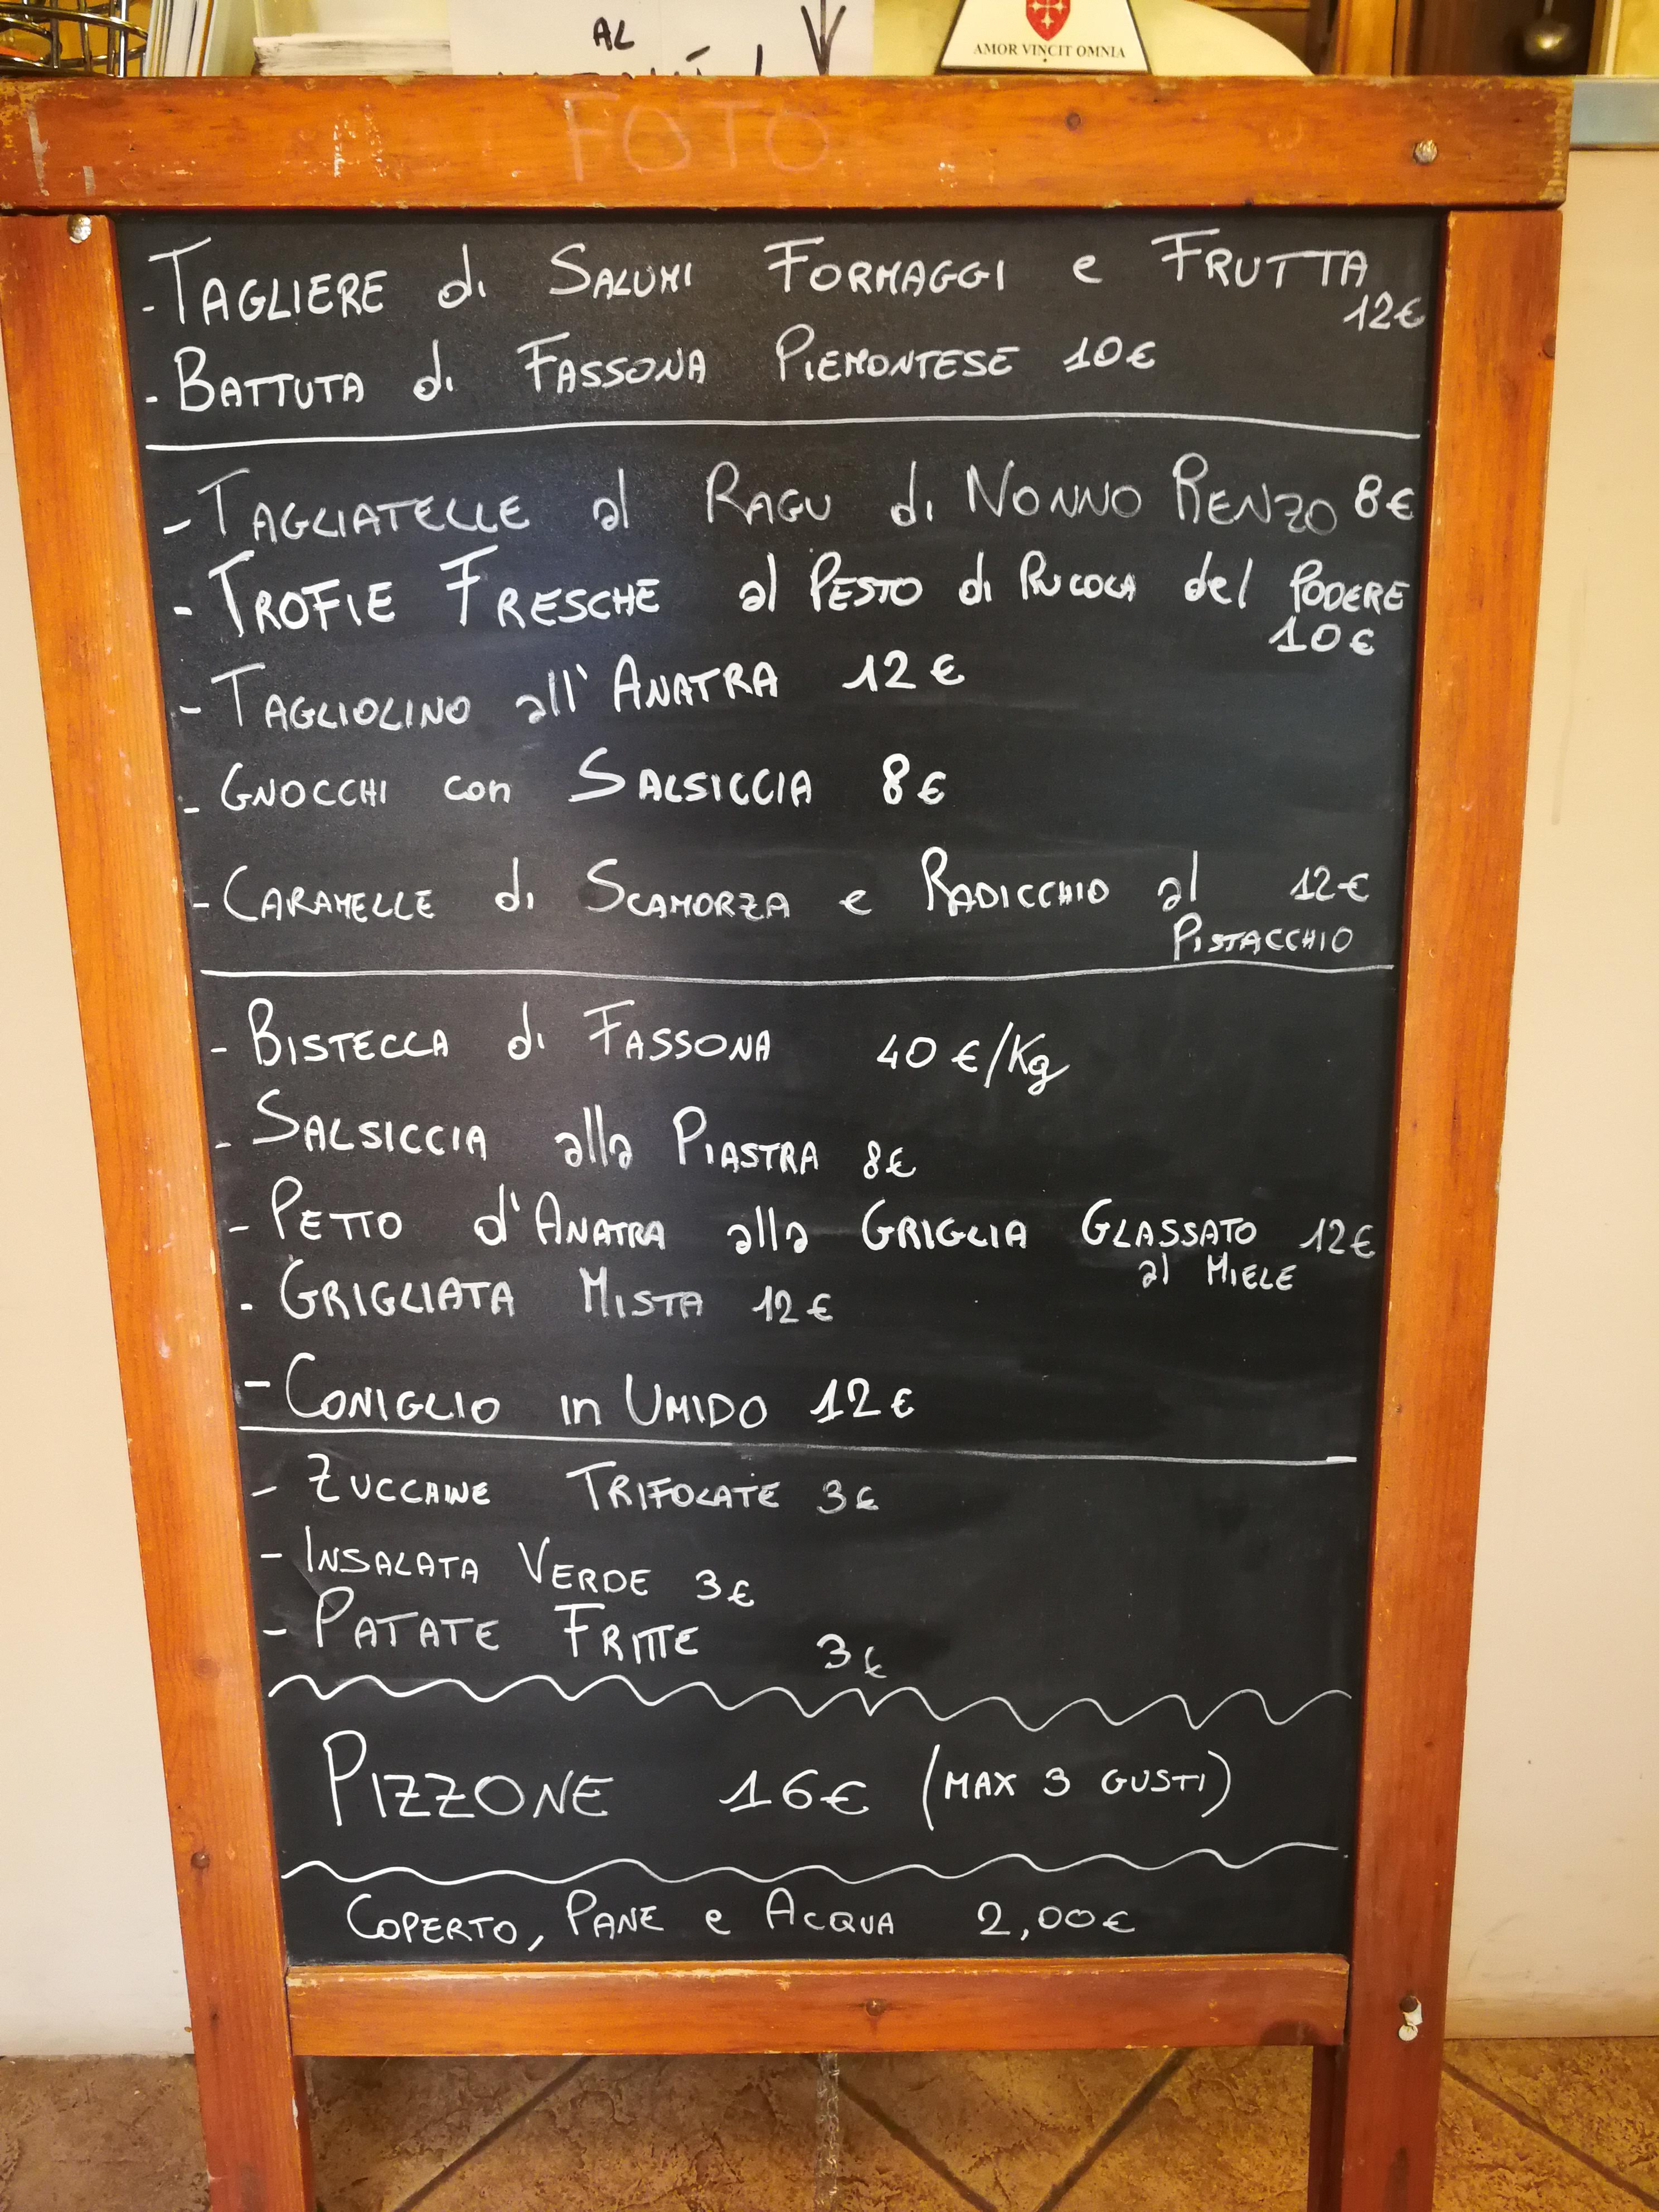 AL
AMOR VINCIT OMNIA
FOTO
- TAGLIERE di SALUMI FORMAGGI e FRUTTA
12€
- BATTUTA di FASSONA PIEMONTESE 10€
- TAGLIATELLE al RAGU di NONNO RENZO 8€
- TROFIE FRESCHE al PESTO di RUCOLA del PODERE
10€
- TAGLIOLINO all'ANATRA 12€
- GNOCCHI con SALSICCIA 8€
- CARAMELLE di SCAMORZA e RADICCHIO al 12€
PISTACCHIO
- BISTECCA di FASSONA 40€/Kg
- SALSICCIA alla PIASTRA 8€
- PETTO d'ANATRA alla GRIGLIA GLASSATO 12€
al MIELE
- GRIGLIATA MISTA 12€
- CONIGLIO in UMIDO 12€
- ZUCCHINE TRIFOLATE 3€
- INSALATA VERDE 3€
- PATATE FRITTE 3€
PIZZONE 16€ (MAX 3 GUSTI)
COPERTO, PANE e ACQUA 2,00€